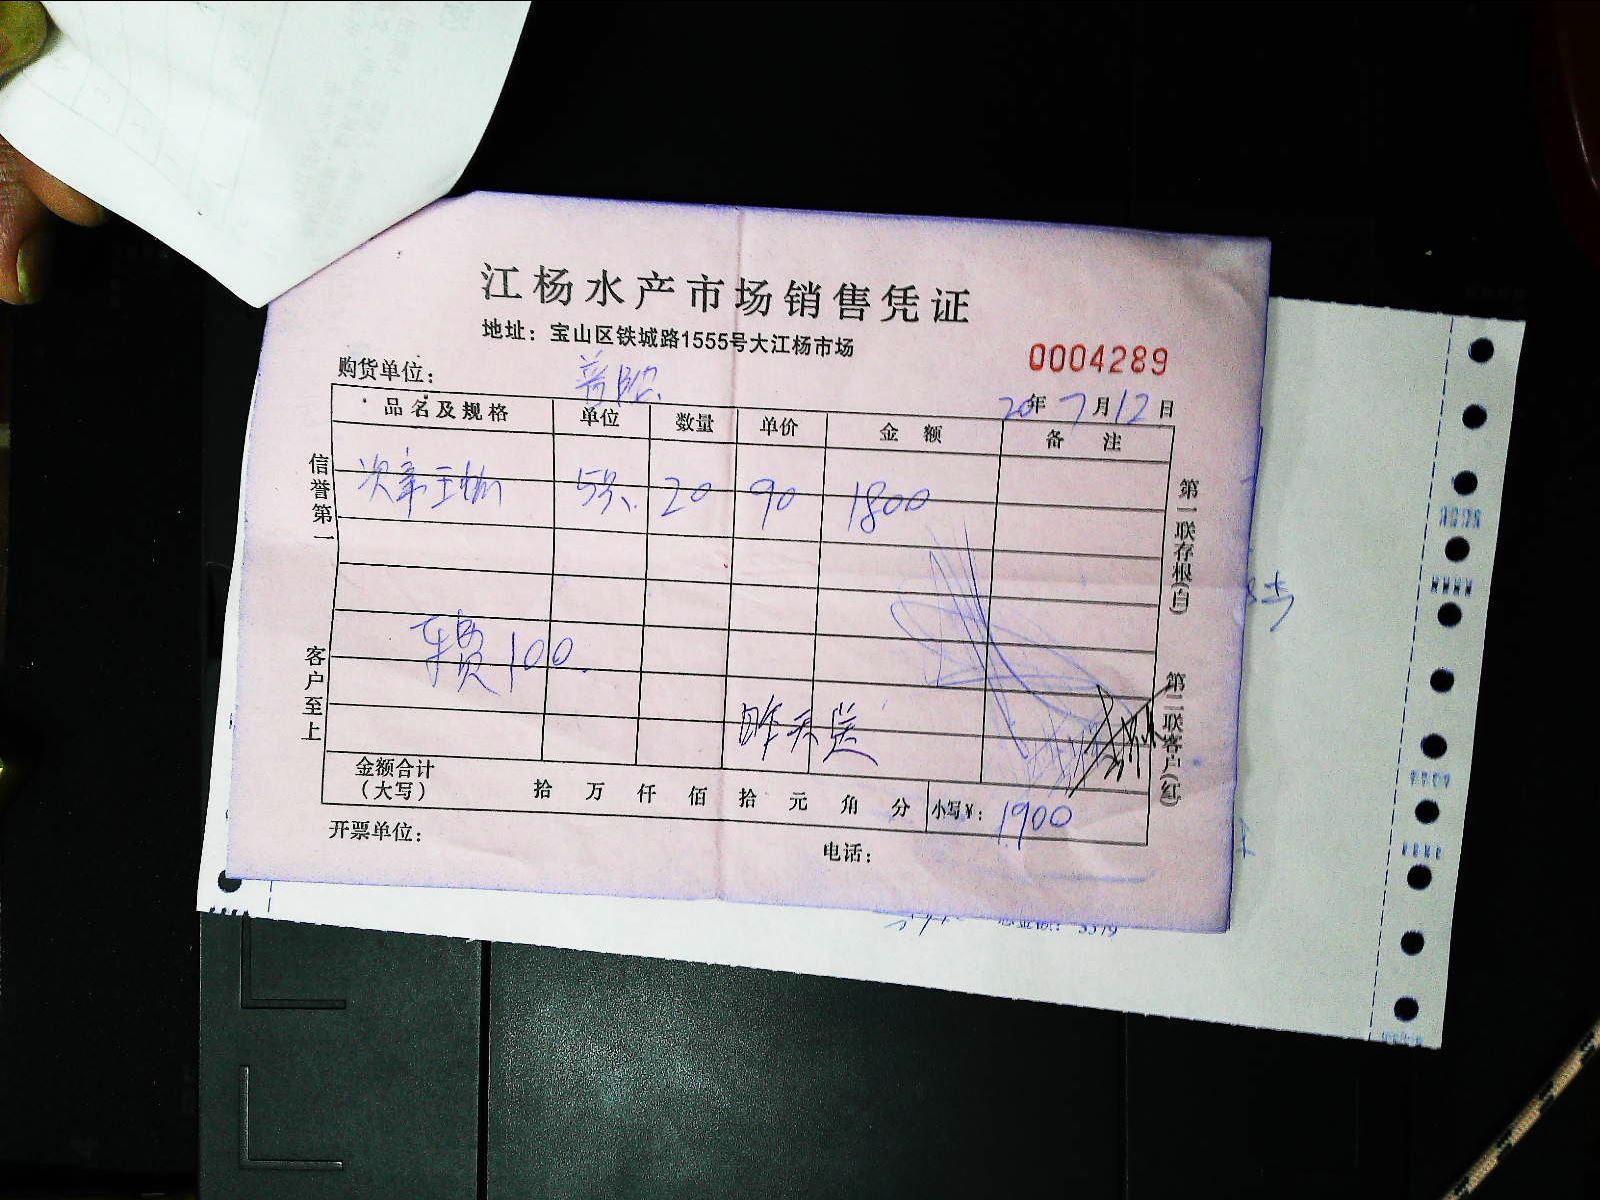 江杨水产市场销售凭证
地址：宝山区铁城路1555号大江杨市场
0004289
购货单位：
20年 7月12日
品名及规格 单位 数量 单价 金额 备注
5号 20 90 1800
车费100
昨天送
金额合计（大写） 拾 万 仟 佰 拾 元 角 分 小写￥：1900
开票单位：
电话：
信誉第一
客户至上
第一联存根(白)
第二联客户(红)